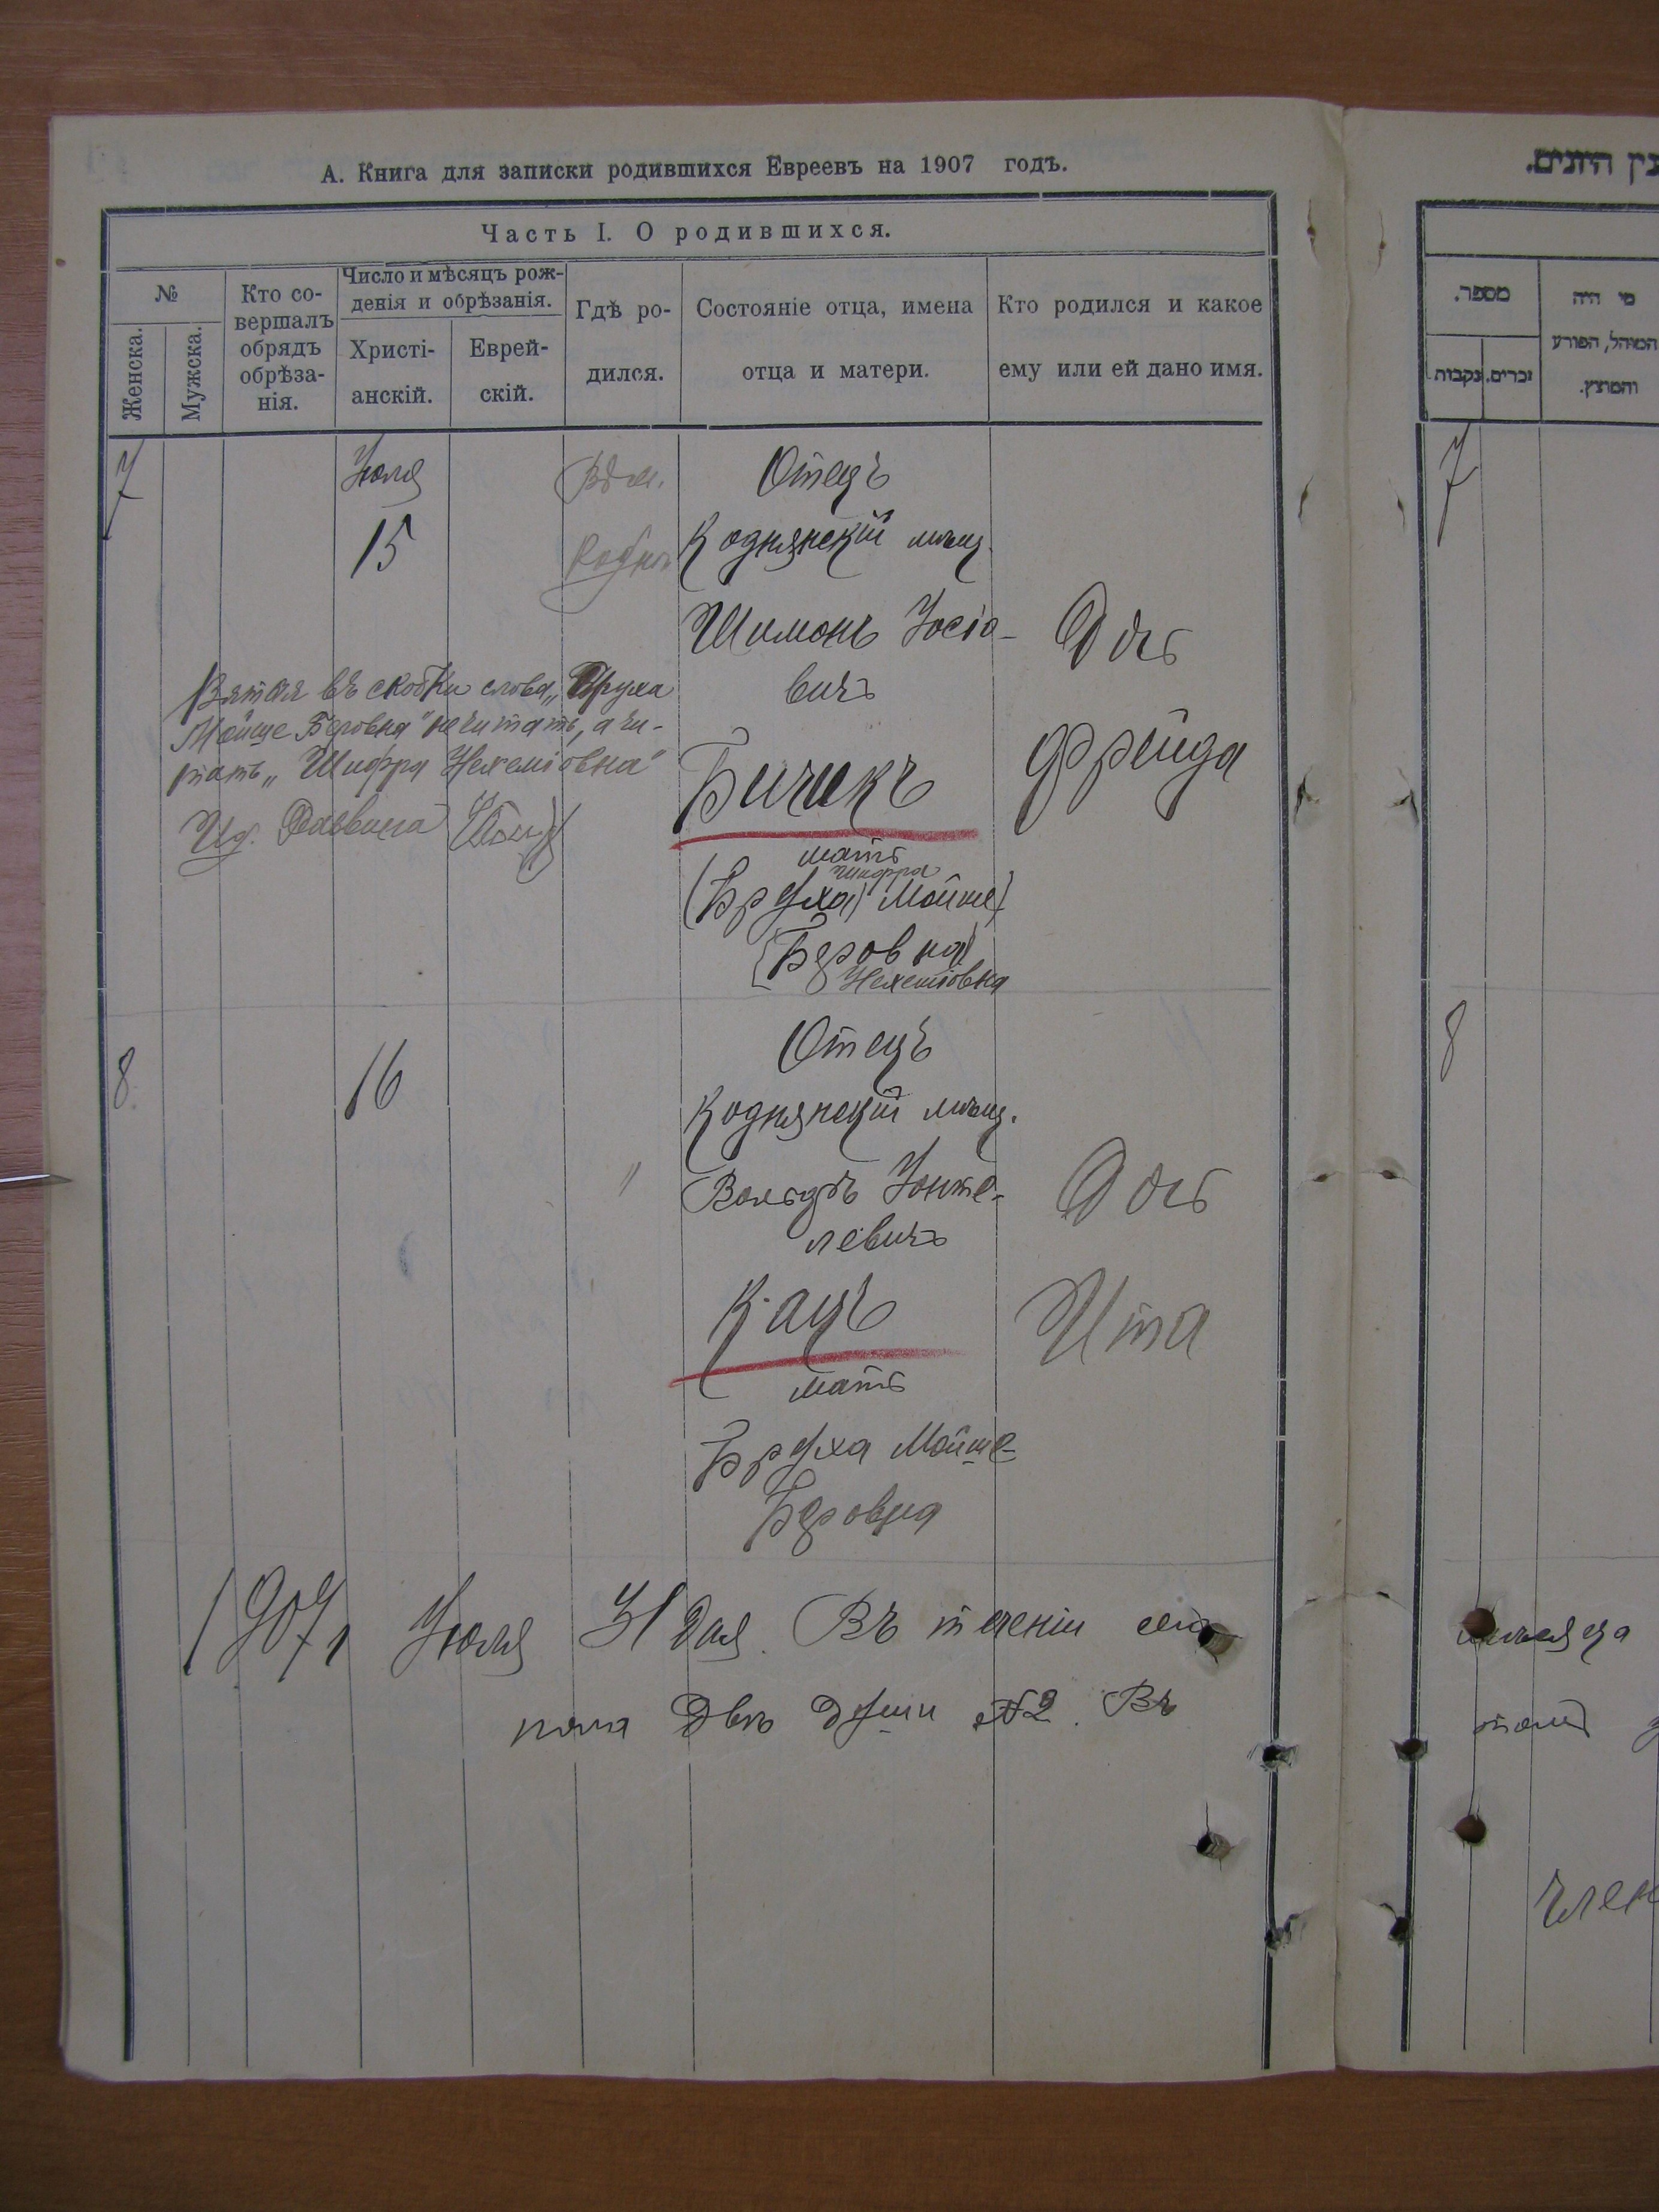 А. Книга для записки родившихся Евреевъ на 1907 годъ.
Часть I. О родившихся.
№
Женска.
Мужска.
Кто со-
вершалъ
обрядъ
обрѣза-
нія.
Число и мѣсяцъ рож-
денія и обрѣзанія.
Христі-
анскій.
Еврей-
скій.
Гдѣ ро-
дился.
Состояніе отца, имена
отца и матери.
Кто родился и какое
ему или ей дано имя.
7
Іюля
15
Въ м.
Кодня
Отецъ
Коднянскій мѣщ.
Шимонъ Іосіо-
вичъ
Бичикъ
мать
Шифра
(Бруха) Мойше)
(Беровна)
Нехеміовна
Дочь
Фрейда
Взятыя въ скобки слова „Бруха
Мойше Беровна" не читать, а чи-
тать „Шифра Нехеміовна"
8
16
"
Отецъ
Коднянскій мѣщ.
Вольфъ Іонте-
левичъ
Кацъ
мать
Бруха Мойше-
Беровна
Дочь
Ита
1907 г. Іюля 31 дня. Въ теченіи сего
пола двѣ души №2. Въ
מספר.
זכרים.
נקבות
מי היה
המוהל, הפורע
והמוצץ.
7
8
мѣсяца